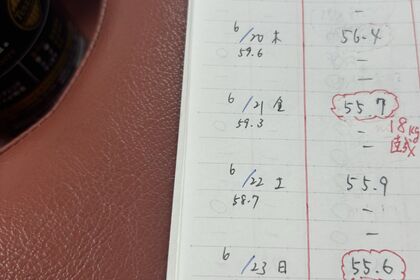 —
6/20 木 56.4
59.6 —
—
6/21 金 55.7
59.3 —
18kg
—
減
6/22 土 55.9
58.7 —
—
6/23 日 55.6